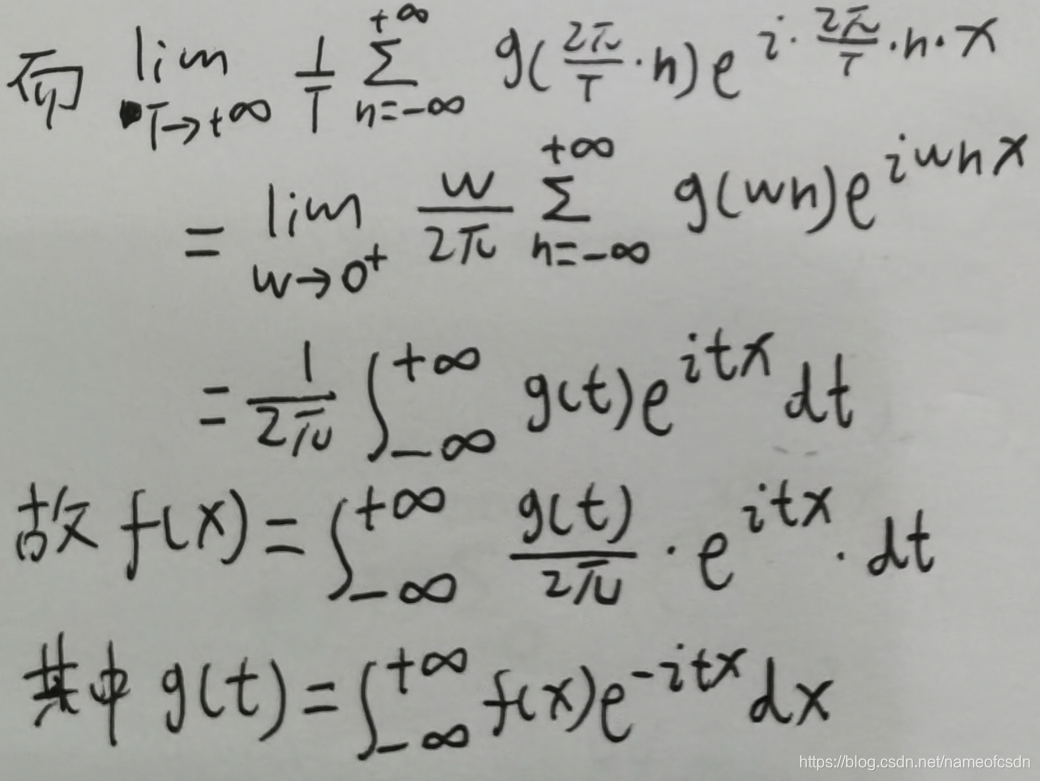 而 lim T→+∞ 1/T ∑ n=-∞ +∞ g(2π/T·n) e^{i·2π/T·n·x}
= lim w→0⁺ w/2π ∑ n=-∞ +∞ g(wn)e^{iwnx}
= 1/2π ∫_{-∞}^{+∞} g(t)e^{itx}dt
故 f(x) = ∫_{-∞}^{+∞} g(t)/2π · e^{itx} · dt
其中 g(t) = ∫_{-∞}^{+∞} f(x)e^{-itx}dx
https://blog.csdn.net/nameofcsdn